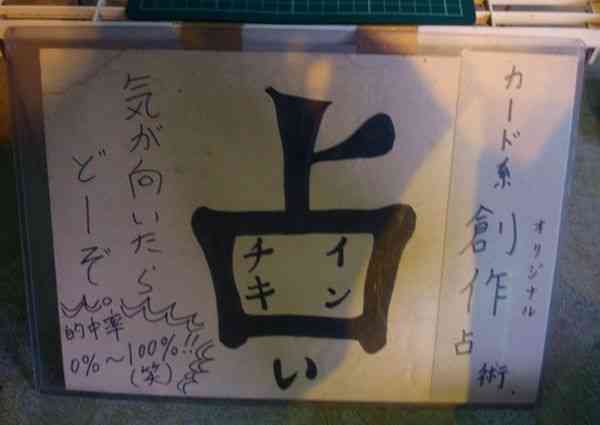 カード系
オリジナル
創作占術.
占い
イン
チキ
気が向いたら
どーぞ
的中率
0%~100%!!
(笑)